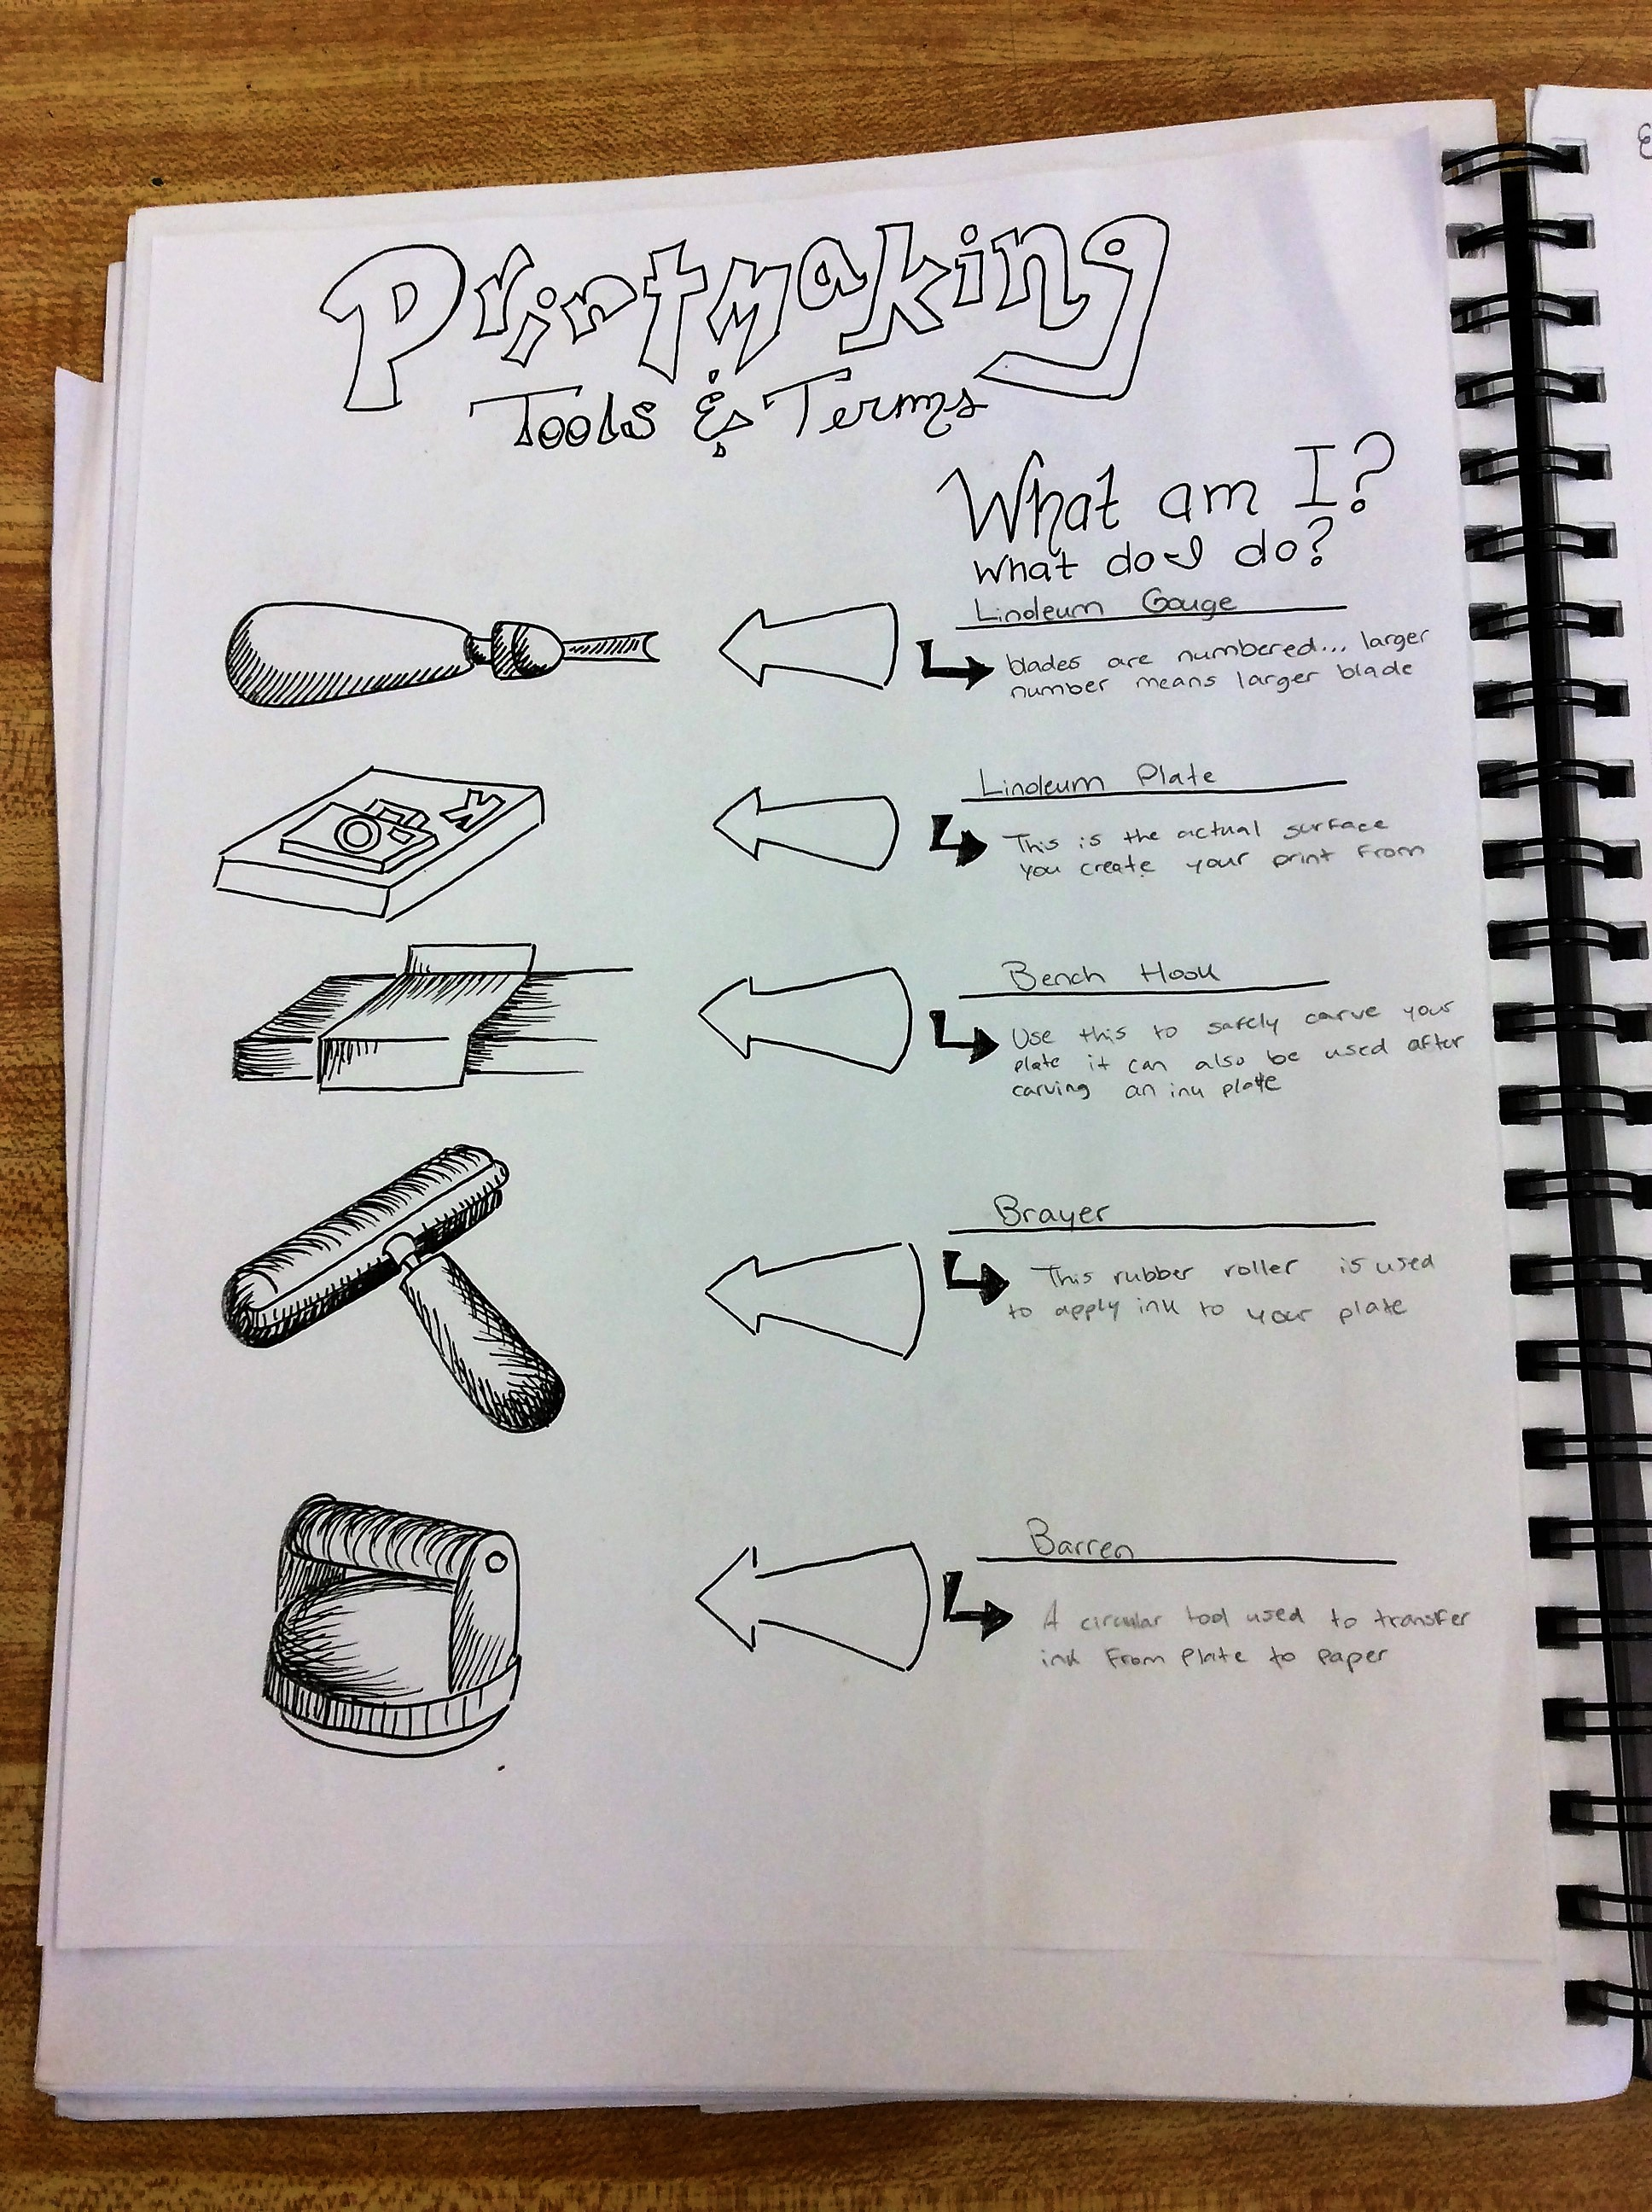 Printmaking
Tools & Terms
What am I?
What do I do?
Linoleum Gouge
blades are numbered... larger
number means larger blade
Linoleum Plate
This is the actual surface
you create your print from
Bench Hook
Use this to safely carve your
plate it can also be used after
carving an ink plate
Brayer
This rubber roller is used
to apply ink to your plate
Barren
A circular tool used to transfer
ink from plate to paper